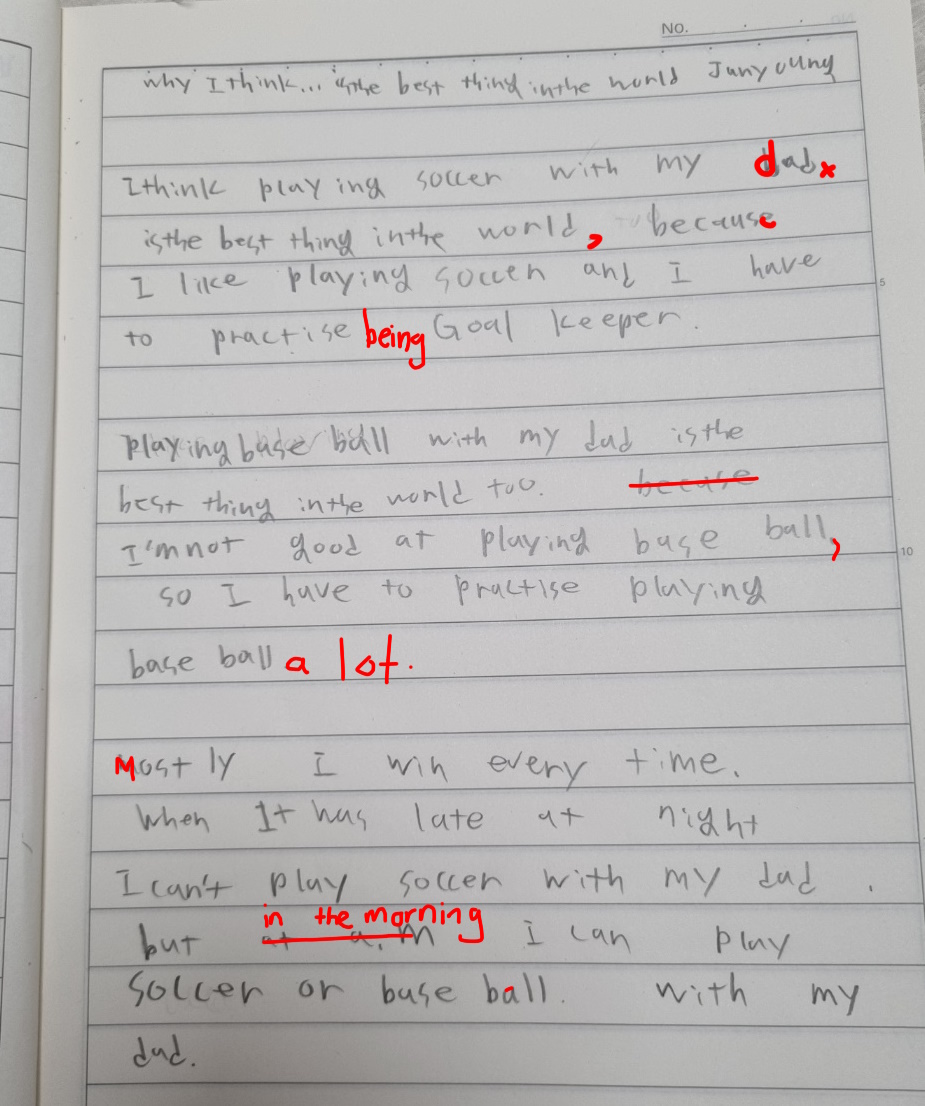 NO.
why I think... is the best thing in the world Junyoung
I think playing soccer with my dad x
is the best thing in the world, because
I like playing soccer and I have
5
to practise being Goal keeper.
playing base ball with my dad is the
best thing in the world too. because
I'm not good at playing base ball,
10
so I have to practise playing
base ball a lot.
Mostly I win every time.
When It has late at night
I can't play soccer with my dad.
in the morning
but at a.m I can play
soccer or base ball. with my
dad.